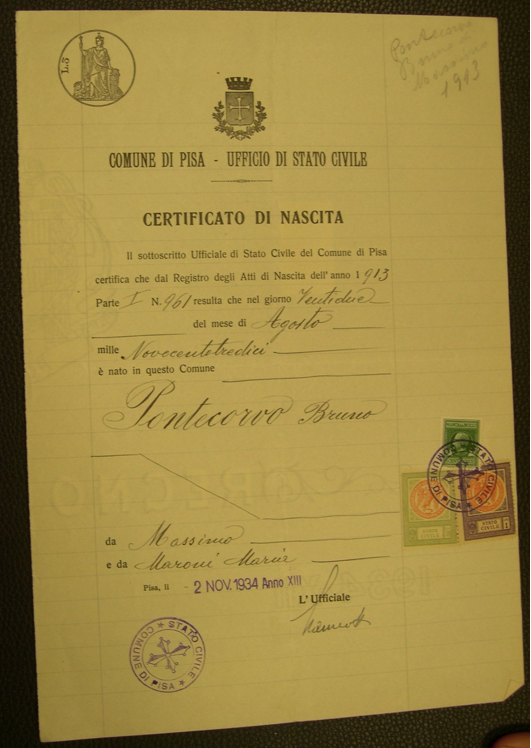 L.3
Pontecorvo
Bruno di
Massimo
1913
COMUNE DI PISA - UFFICIO DI STATO CIVILE
CERTIFICATO DI NASCITA
Il sottoscritto Ufficiale di Stato Civile del Comune di Pisa
certifica che dal Registro degli Atti di Nascita dell'anno 1913
Parte I N. 961 resulta che nel giorno Ventidue
del mese di Agosto
mille Novecentotredici
è nato in questo Comune
Pontecorvo Bruno
da Massimo
e da Maroni Maria
Pisa, li - 2 NOV. 1934 Anno XIII
L'Ufficiale
STATO CIVILE
COMUNE DI PISA
STATO CIVILE
COMUNE DI PISA
STATO
CIVILE
STATO
CIVILE